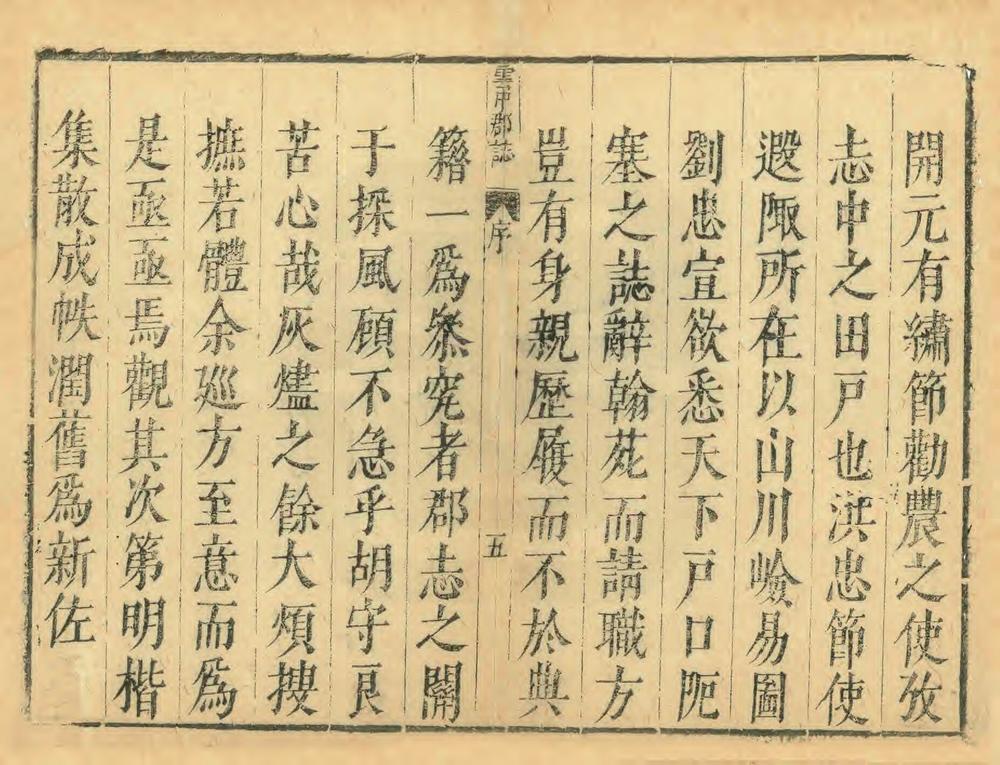 開元有繡節勸農之使攷
志中之田戸也洪忠節使
遐陬所在以山川嶮易圖
劉忠宣欲悉天下戸口阨
塞之誌辭翰苑而請職方
豈有身親歷履而不於典
雲中郡誌 序 五
籍一爲叅究者郡志之關
于採風顧不急乎胡守良
苦心哉灰燼之餘大煩搜
摭若體余巡方至意而爲
是亟亟焉觀其次第明楷
集散成帙潤舊爲新佐